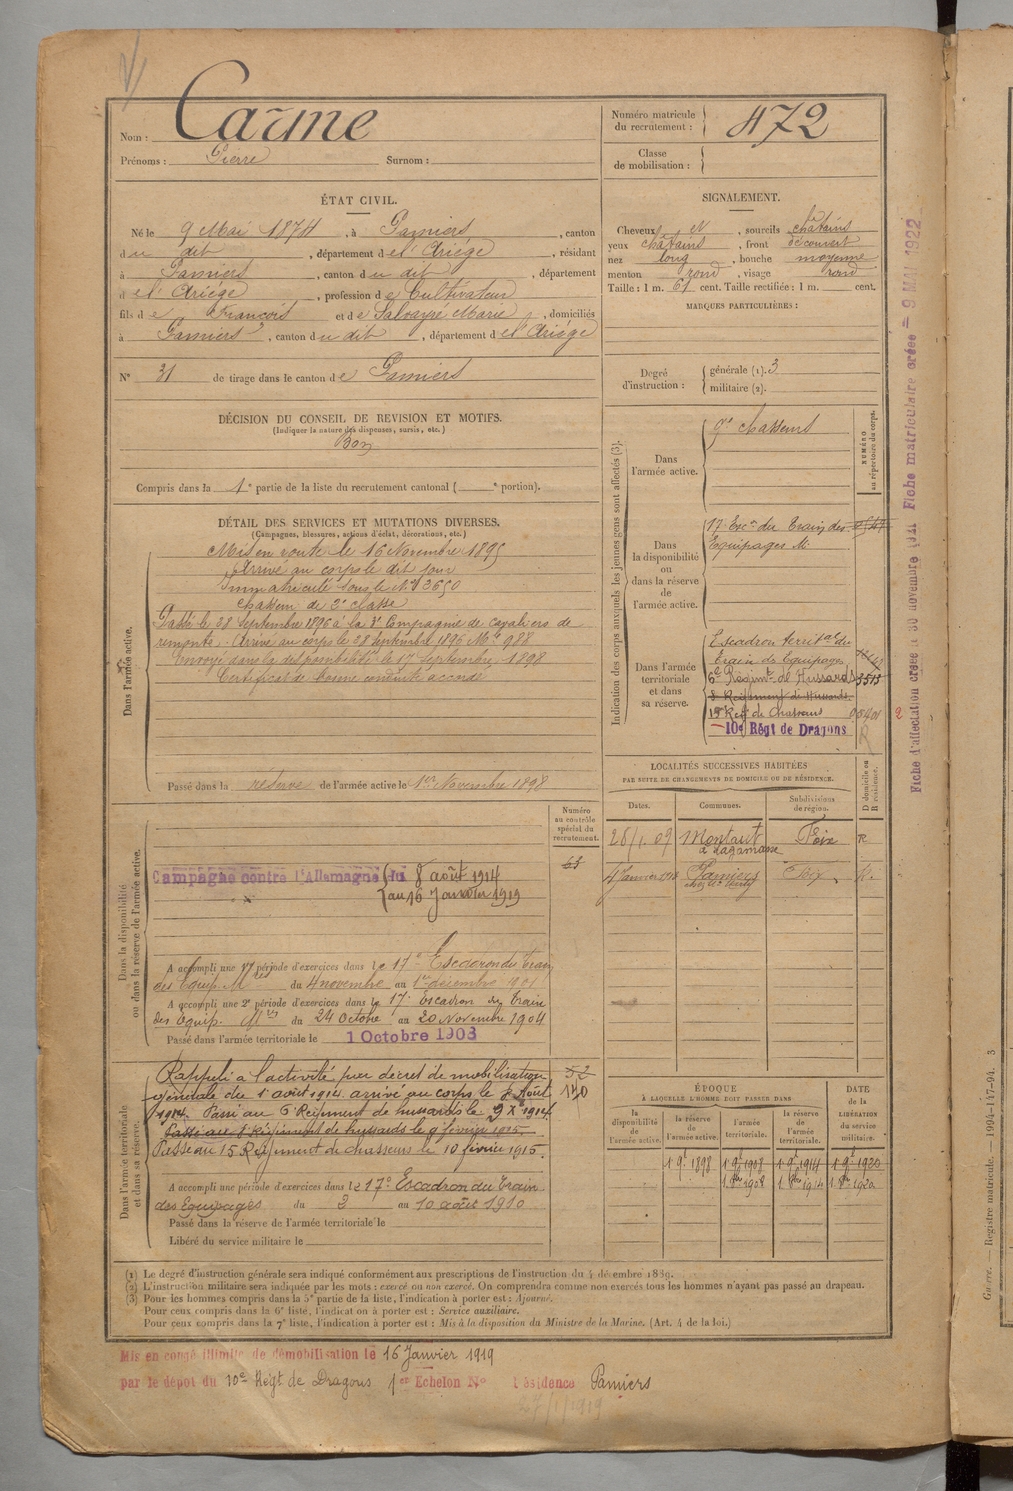 Nom : Carme
Prénoms : Pierre Surnom :
Numéro matricule
du recrutement : 472
Classe
de mobilisation :
ÉTAT CIVIL.
Né le 9 Mai 1874, à Pamiers, canton
du dit, département de l'Ariège, résidant
à Pamiers, canton du dit, département
de l'Ariège, profession de Cultivateur
fils de François et de Salvayre Marie, domiciliés
à Pamiers, canton du dit, département de l'Ariège
N° 31 de tirage dans le canton de Pamiers
DÉCISION DU CONSEIL DE REVISION ET MOTIFS.
(Indiquer la nature des dispenses, sursis, etc.)
Bon
Compris dans la 1e partie de la liste du recrutement cantonal ( e portion).
SIGNALEMENT.
Cheveux et, sourcils châtains
yeux châtains, front découvert
nez long, bouche moyenne
menton rond, visage rond
Taille : 1 m. 61 cent. Taille rectifiée : 1 m. cent.
MARQUES PARTICULIÈRES :
Degré
d'instruction :
générale (1). 3
militaire (2).
DÉTAIL DES SERVICES ET MUTATIONS DIVERSES.
(Campagnes, blessures, actions d'éclat, décorations, etc.)
Dans l'armée active.
Mis en route le 16 Novembre 1895
Arrivé au corps le dit jour
Immatriculé sous le N° 3650
chasseur de 2e classe
Passé le 28 Septembre 1896 à la 3e Compagnie de cavaliers de
remonte. Arrivé au corps le 28 Septembre 1896 Mle 988
Envoyé dans la disponibilité le 17 Septembre 1898
Certificat de bonne conduite accordé
Passé dans la réserve de l'armée active le 1er Novembre 1898
Indication des corps auxquels les jeunes gens sont affectés (3).
NUMÉRO
au répertoire du corps.
Dans
l'armée active.
9e chasseurs
Dans
la disponibilité
ou
dans la réserve
de
l'armée active.
17 Eson du Train des
Equipages M.
Dans l'armée
territoriale
et dans
sa réserve.
Escadron territal du
Train des Equipages
6e Régimt de Hussards 3513
8e Régiment de Hussards
15 Regt de Chasseurs
10e Régt de Dragons
LOCALITÉS SUCCESSIVES HABITÉES
PAR SUITE DE CHANGEMENTS DE DOMICILE OU DE RÉSIDENCE.
Dates. Communes. Subdivisions
de région.
D domicile ou
R résidence.
Montaut Foix R
Pamiers Foix R.
Dans la disponibilité
ou dans la réserve de l'armée active.
Numéro
au contrôle
spécial du
recrutement.
Campagne contre l'Allemagne du 8 août 1914
au 16 Janvier 1919
A accompli une 1re période d'exercices dans le 17e Escadron du Train
des Equip. Mres du 4 novembre au 1er décembre 1901
A accompli une 2e période d'exercices dans le 17e Escadron du Train
des Equip. Mres du 24 Octobre au 20 Novembre 1904
Passé dans l'armée territoriale le 1 Octobre 1908
Dans l'armée territoriale
et dans sa réserve.
Rappelé à l'activité par décret de mobilisation
générale du 1er août 1914. arrivé au corps le 8 Août
1914. Passé au 6e Régiment de hussards le 9 Xbre 1914
Passé au 8e Régiment de hussards le 9 février 1915.
Passé au 15 Régiment de chasseurs le 10 février 1915.
140
A accompli une période d'exercices dans le 17e Escadron du Train
des Equipages du 2 au 10 août 1910
Passé dans la réserve de l'armée territoriale le
Libéré du service militaire le
ÉPOQUE
À LAQUELLE L'HOMME DOIT PASSER DANS
DATE
de la
LIBÉRATION
du service
militaire.
la
disponibilité
de
l'armée active.
la réserve
de
l'armée active.
l'armée
territoriale.
la réserve
de
l'armée
territoriale.
1 9e 1898 1 9e 1908 1 9e 1914 1 9e 1920
1. 8bre 1908 1. 8bre 1914 1. 8bre 1920
(1) Le degré d'instruction générale sera indiqué conformément aux prescriptions de l'instruction du 4 décembre 1889.
(2) L'instruction militaire sera indiquée par les mots : exercé ou non exercé. On comprendra comme non exercés tous les hommes n'ayant pas passé au drapeau.
(3) Pour les hommes compris dans la 5e partie de la liste, l'indication à porter est : Ajourné.
Pour ceux compris dans la 6e liste, l'indication à porter est : Service auxiliaire.
Pour ceux compris dans la 7e liste, l'indication à porter est : Mis à la disposition du Ministre de la Marine. (Art. 4 de la loi.)
Mis en congé illimité de démobilisation le 16 Janvier 1919
par le dépôt du 10e Régt de Dragons 1er Echelon N° résidence Pamiers
Fiche matriculaire créée - 9 MAI 1922
Guerre. — Registre matricule. — 1994-147-94. 3